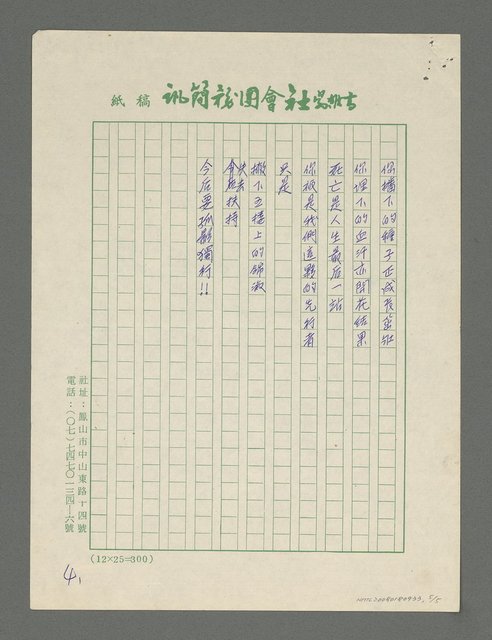 吉報吳社會團務簡訊 稿紙
你播下的種子正成長茁壯
你埋下的血汗亦開花結果
死亡是人生最后一站
你祇是我們這夥的先行者
只是
撇下五樓上的錦淑
失去扶持
今后要孤鬆獨行!!
社址：鳳山市中山東路十四號
電話：(〇七)七四七〇一三四—六號
(12×25=300)
4.
5/5